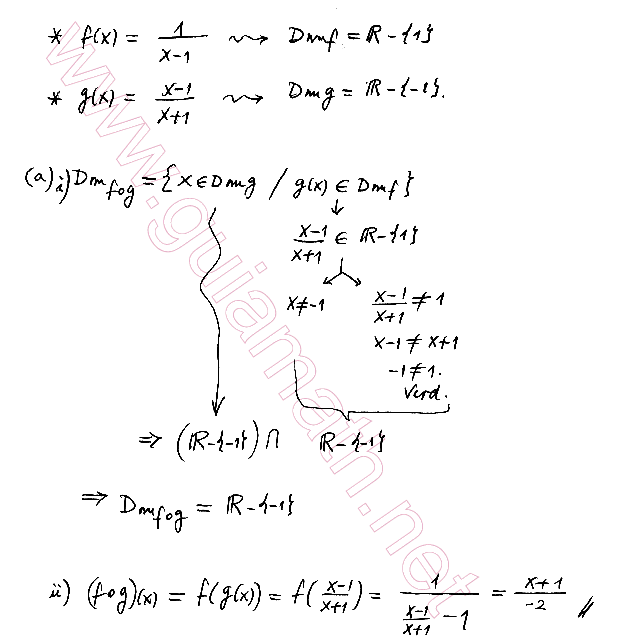 * f(x) = 1/(x-1) ⇝ Dmf = ℝ-{1}
* g(x) = (x-1)/(x+1) ⇝ Dmg = ℝ-{-1}.
(a) i) Dm_{fog} = {x ∈ Dmg / g(x) ∈ Dmf}
↓
(x-1)/(x+1) ∈ ℝ-{1}
x ≠ -1    (x-1)/(x+1) ≠ 1
x-1 ≠ x+1
-1 ≠ 1.
Verd.
⇒ (ℝ-{-1}) ∩ ℝ-{-1}
⇒ Dm_{fog} = ℝ-{-1}
ii) (fog)(x) = f(g(x)) = f((x-1)/(x+1)) = 1/((x-1)/(x+1) - 1) = (x+1)/-2 //
www.guiamath.net